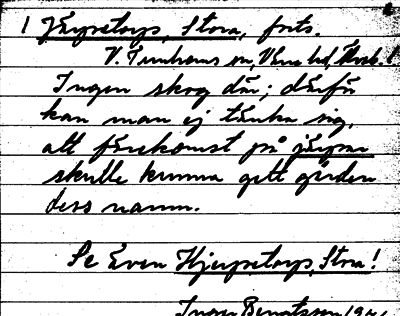 1 Järpetorp, Stora, forts.
V. Tunhems sn, Väne hd, Skarb. l
Ingen skog där; därför
kan man ej tänka sig,
att förekomst på järpar
skulle kunna gett gården
dess namn.
Se även Hjerpetorp, Stora!
Ingar Bengtsson